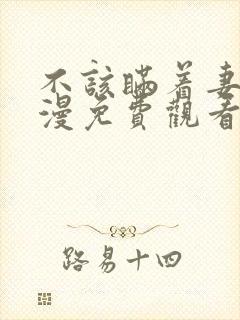 不该瞒着妻
漫免費觀看
路易十四